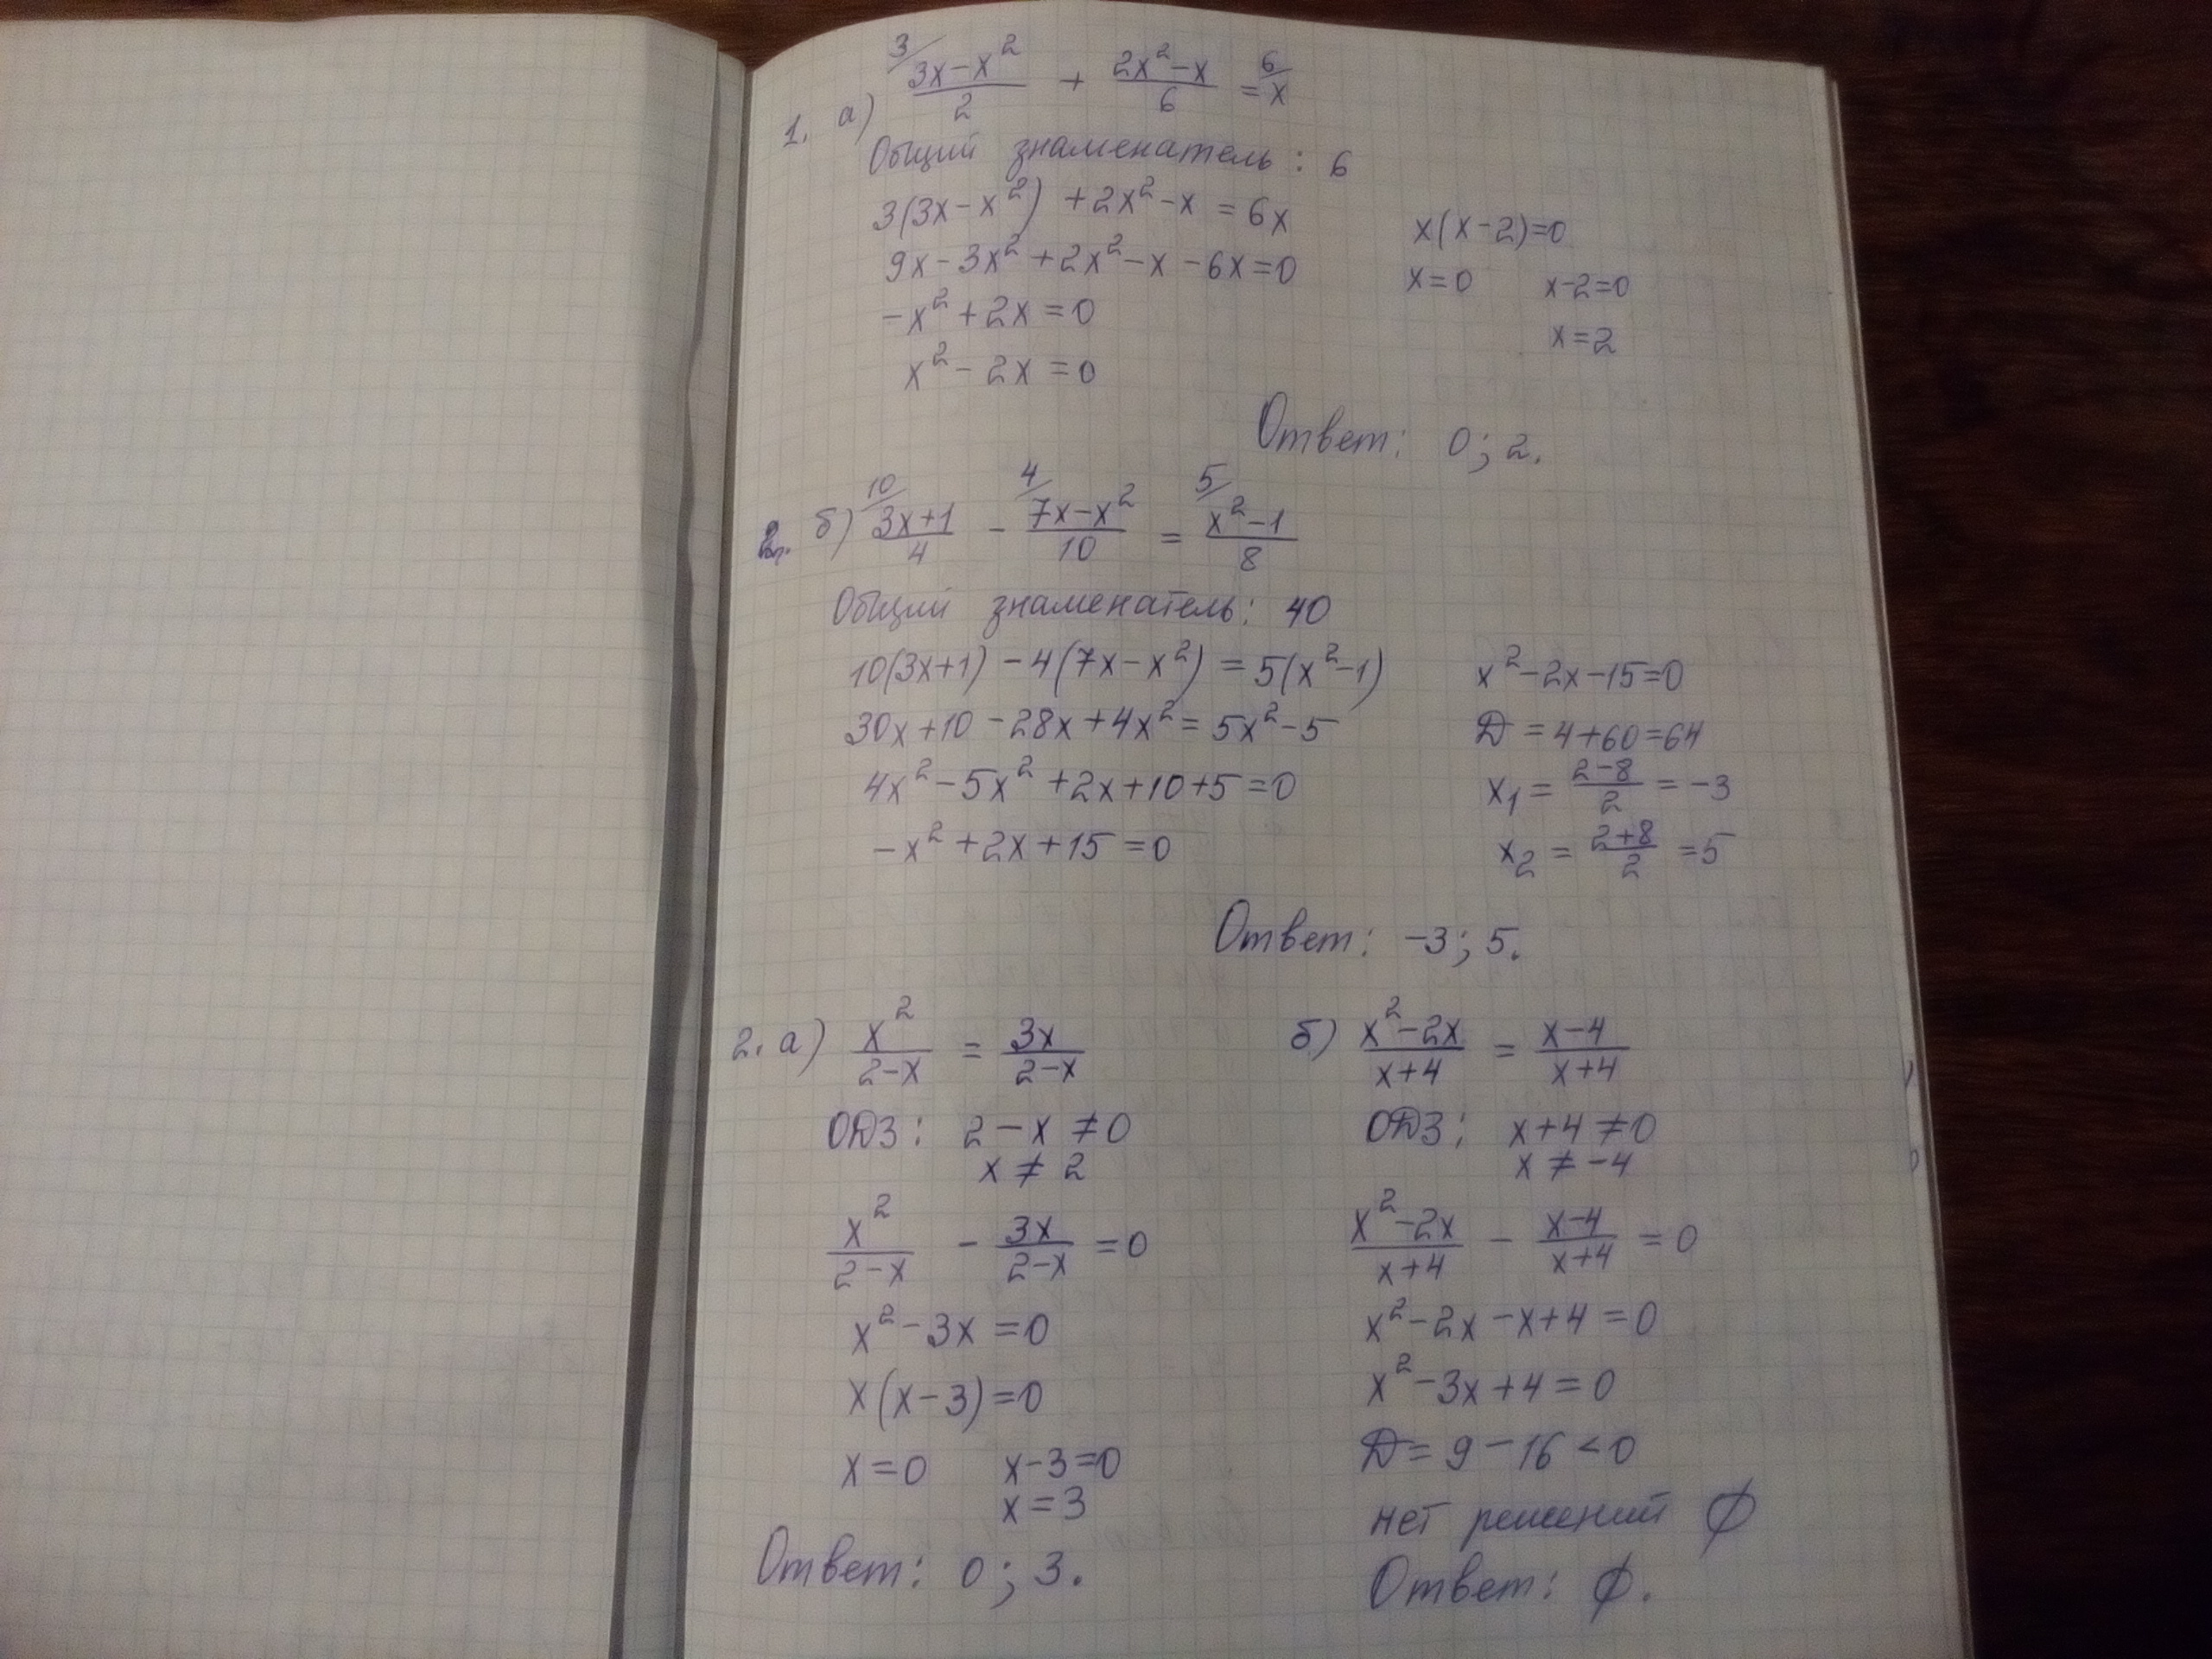 1. а) ³⁄ (3x−x²)/2 + (2x²−x)/6 = ⁶⁄ x
Общий знаменатель: 6
3(3x−x²) +2x²−x = 6x
9x−3x²+2x²−x−6x=0
−x²+2x=0
x²−2x=0
x(x−2)=0
x=0 x−2=0
x=2
Ответ: 0; 2.
б) ¹⁰⁄ (3x+1)/4 − ⁴⁄ (7x−x²)/10 = ⁵⁄ (x²−1)/8
Общий знаменатель: 40
10(3x+1)−4(7x−x²)=5(x²−1)
30x+10−28x+4x²=5x²−5
4x²−5x²+2x+10+5=0
−x²+2x+15=0
x²−2x−15=0
Д=4+60=64
x₁=(2−8)/2=−3
x₂=(2+8)/2=5
Ответ: −3; 5.
2. а) x²/(2−x) = 3x/(2−x)
ОДЗ: 2−x≠0
x≠2
x²/(2−x) − 3x/(2−x) =0
x²−3x=0
x(x−3)=0
x=0 x−3=0
x=3
Ответ: 0; 3.
б) (x²−2x)/(x+4) = (x−4)/(x+4)
ОДЗ: x+4≠0
x≠−4
(x²−2x)/(x+4) − (x−4)/(x+4) = 0
x²−2x−x+4=0
x²−3x+4=0
Д=9−16<0
нет решений ∅
Ответ: ∅.